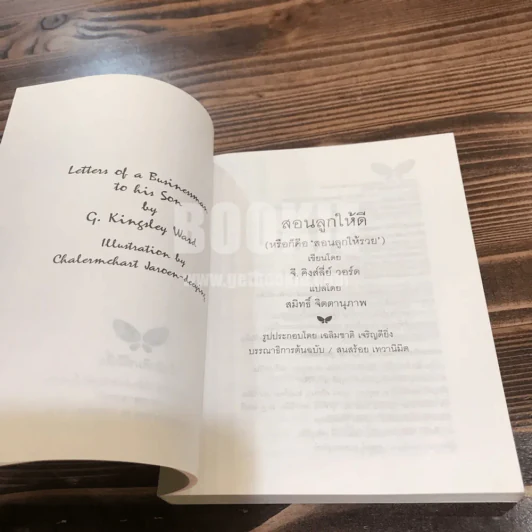 Letters of a Businessman
to his Son
by
G. Kingsley Ward
Illustration by
Chalermchart Jaroen-deeying
สอนลูกให้ดี
(หรือก็คือ "สอนลูกให้รวย")
เขียนโดย
จี. คิงส์ลี่ย์ วอร์ด
แปลโดย
สมิทธิ์ จิตตานุภาพ
รูปประกอบโดย เฉลิมชาติ เจริญดียิ่ง
บรรณาธิการต้นฉบับ / สนสร้อย เทวานิมิต